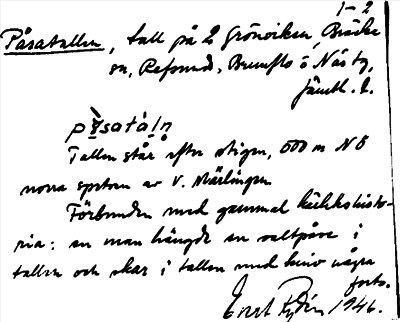 1-2
Påsatallen, tall på 2 Grönviken, Bräcke
sn, Refsund, Brunflo o Näs tg,
Jämtl. l.
Tallen står efter stigen, 500 m NÖ
norra spetsen av V. Märlingen
Förbunden med gammal kärlekshisto-
ria: en man hängde en saltpåse i
tallen och skar i tallen med kniv några
ord.
Ernst 1946.